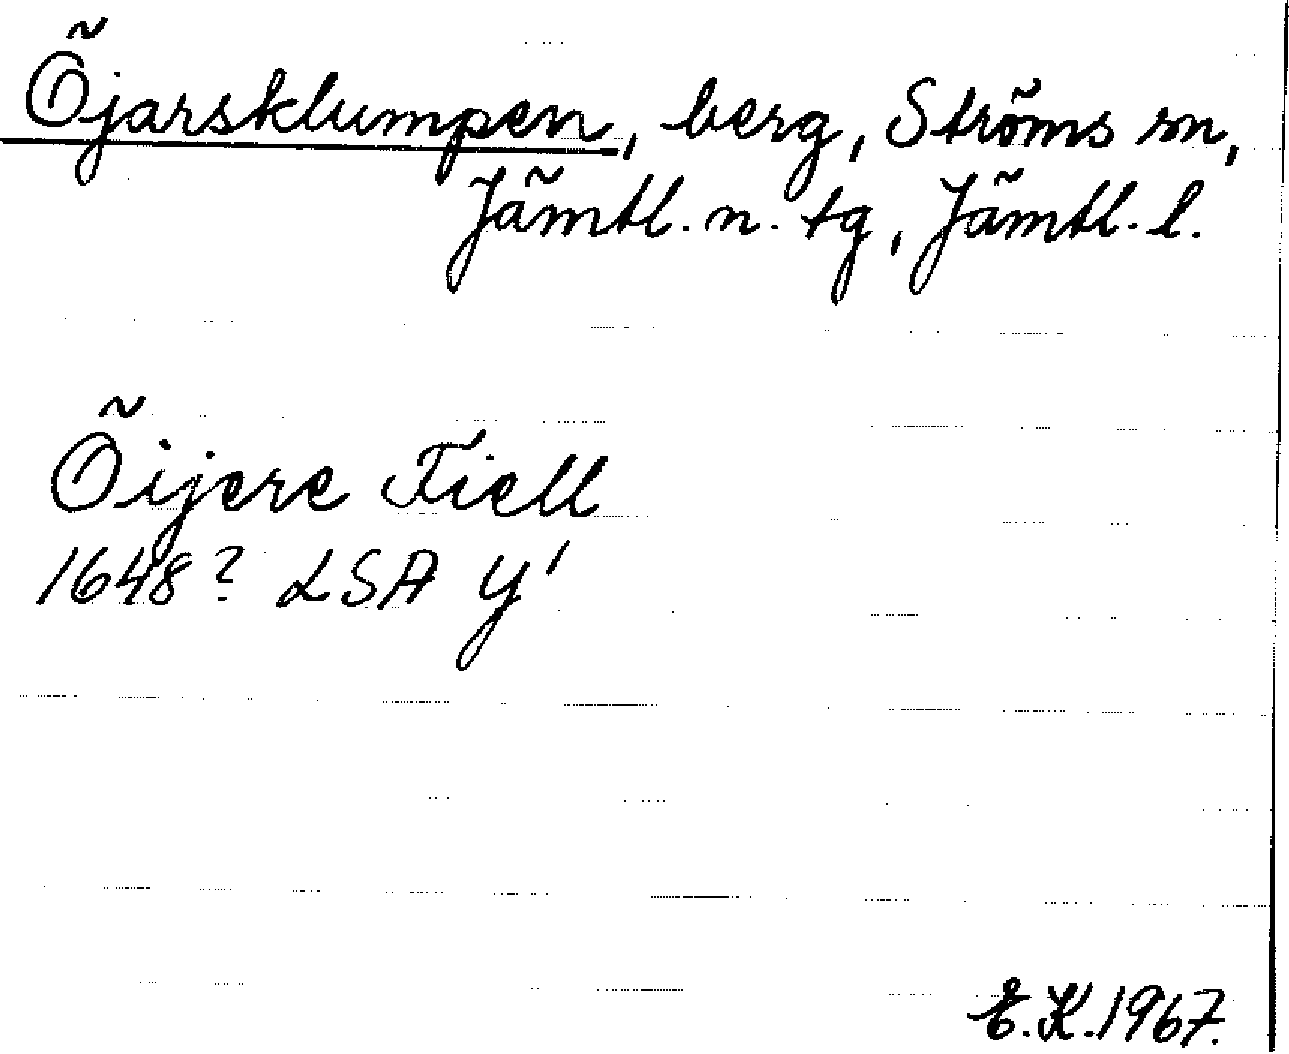 Öjarsklumpen, berg, Ströms sn,
Jämtl. n. tg, Jämtl. l.
Öijere Fiell
1648? LSA Y'
E.K. 1967.